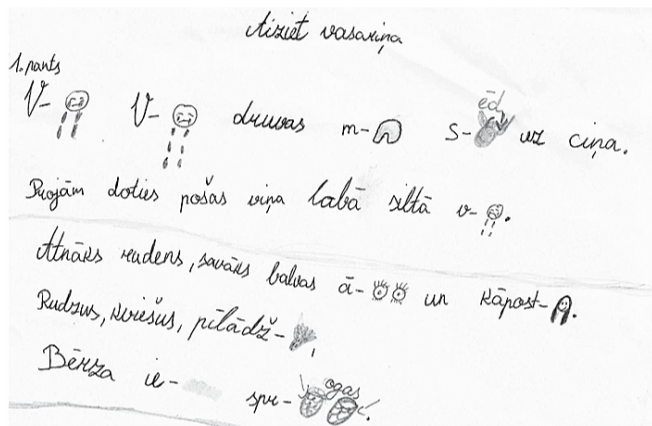 Aiziet vasariņa
1. pants
V- V- druvas m- s- ēd uz ciņa.
Projām doties pošas viņa labā siltā v- .
Atnāks rudens, savāks balvas ā- un kāpost- .
Rudzus, kviešus, pīlādž- ,
Bērza ie- spr- ogas .